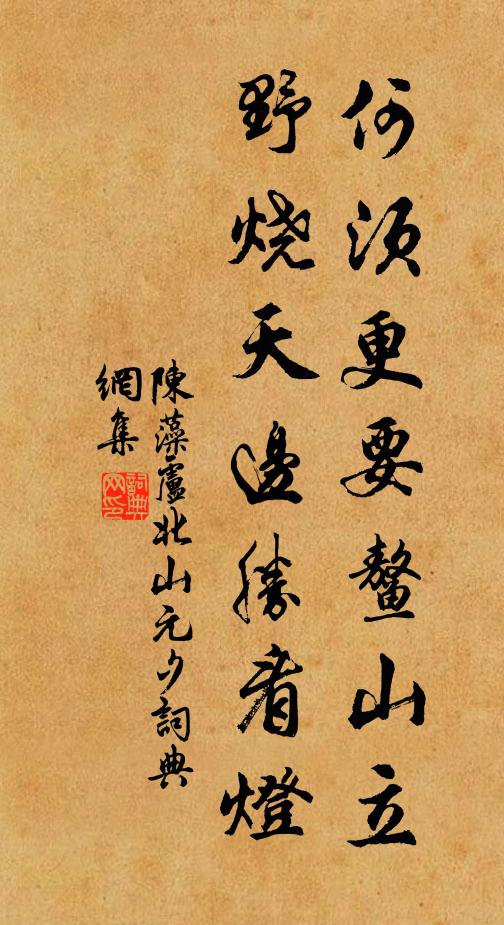 何須更要鰲山立
野烧天邊勝看燈
陳藻盧北山元夕詞典
網集
詞典網印